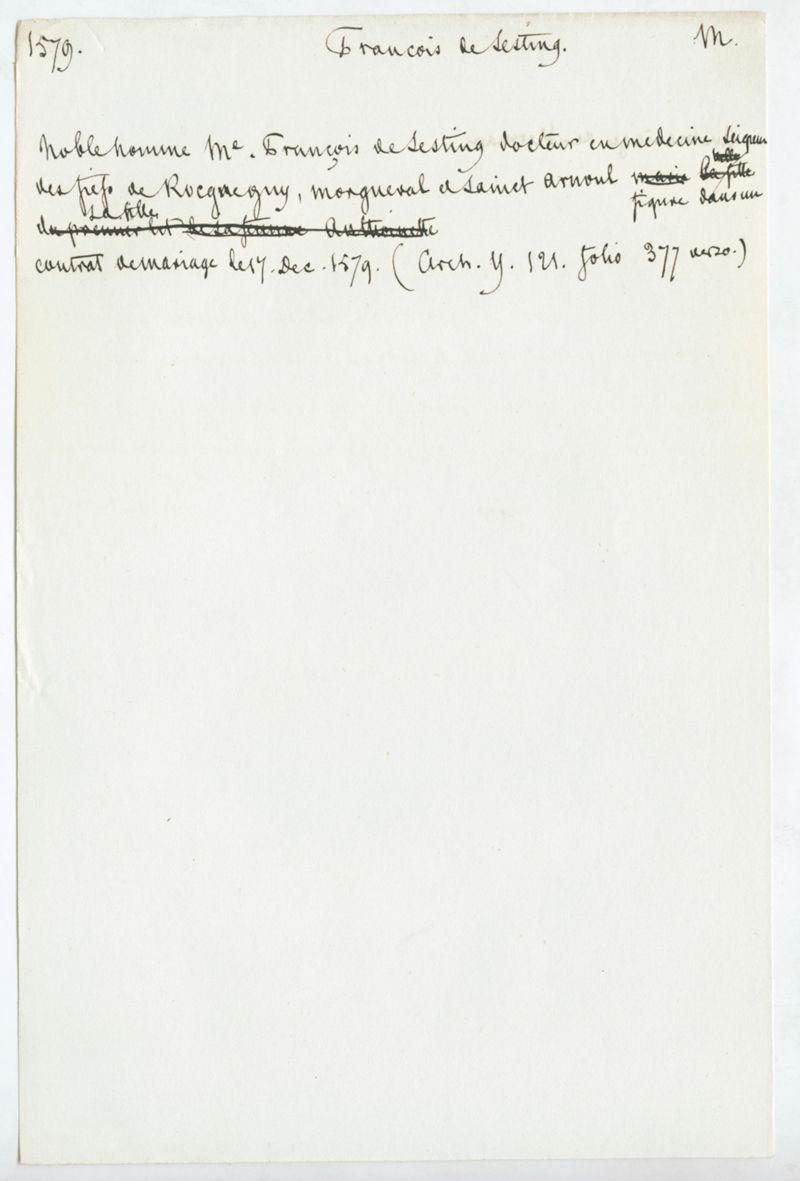 1579. François de Sesting. M.
Noble homme Me. François de Sesting docteur en medecine Seigneur
des fiefs de Rocquegny, morgueval et Sainct Arnoul marie la fille
figure dans un
la fille
du premier lit de sa femme Anthoinette
contrat de mariage le 17. Dec. 1579. (Arch. Y. 121. folio 377 verso.)